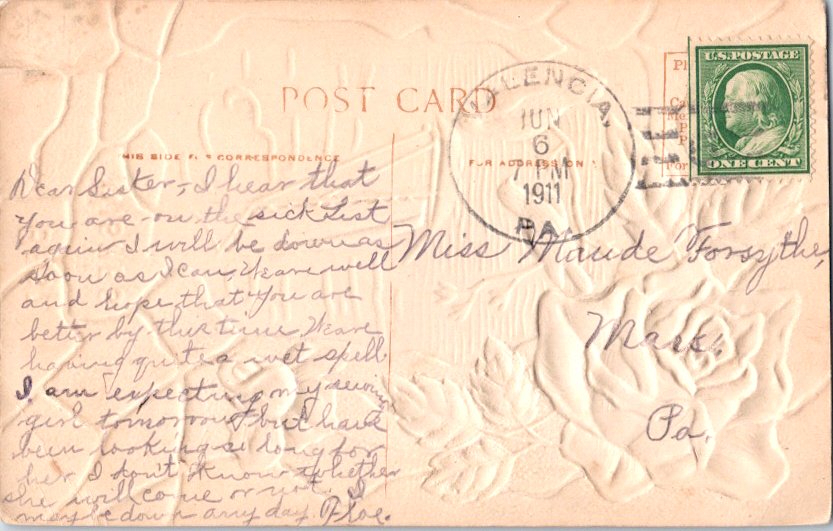 POST CARD
THIS SIDE FOR CORRESPONDENCE
FOR ADDRESS ON
VALENCIA,
JUN
6
7 PM
1911
PA.
U.S. POSTAGE
ONE CENT
Dear Sister, I hear that
you are on the sick List
again I will be down as
soon as I can, We are well
and hope that you are
better by this time We are
having quite a wet spell
I am expecting my sewing
girl tomorrow but have
been looking so long for
her I don't know whether
she will come or not. I
may be down any day.
Miss Maude Forsythe,
Mars,
Pa.